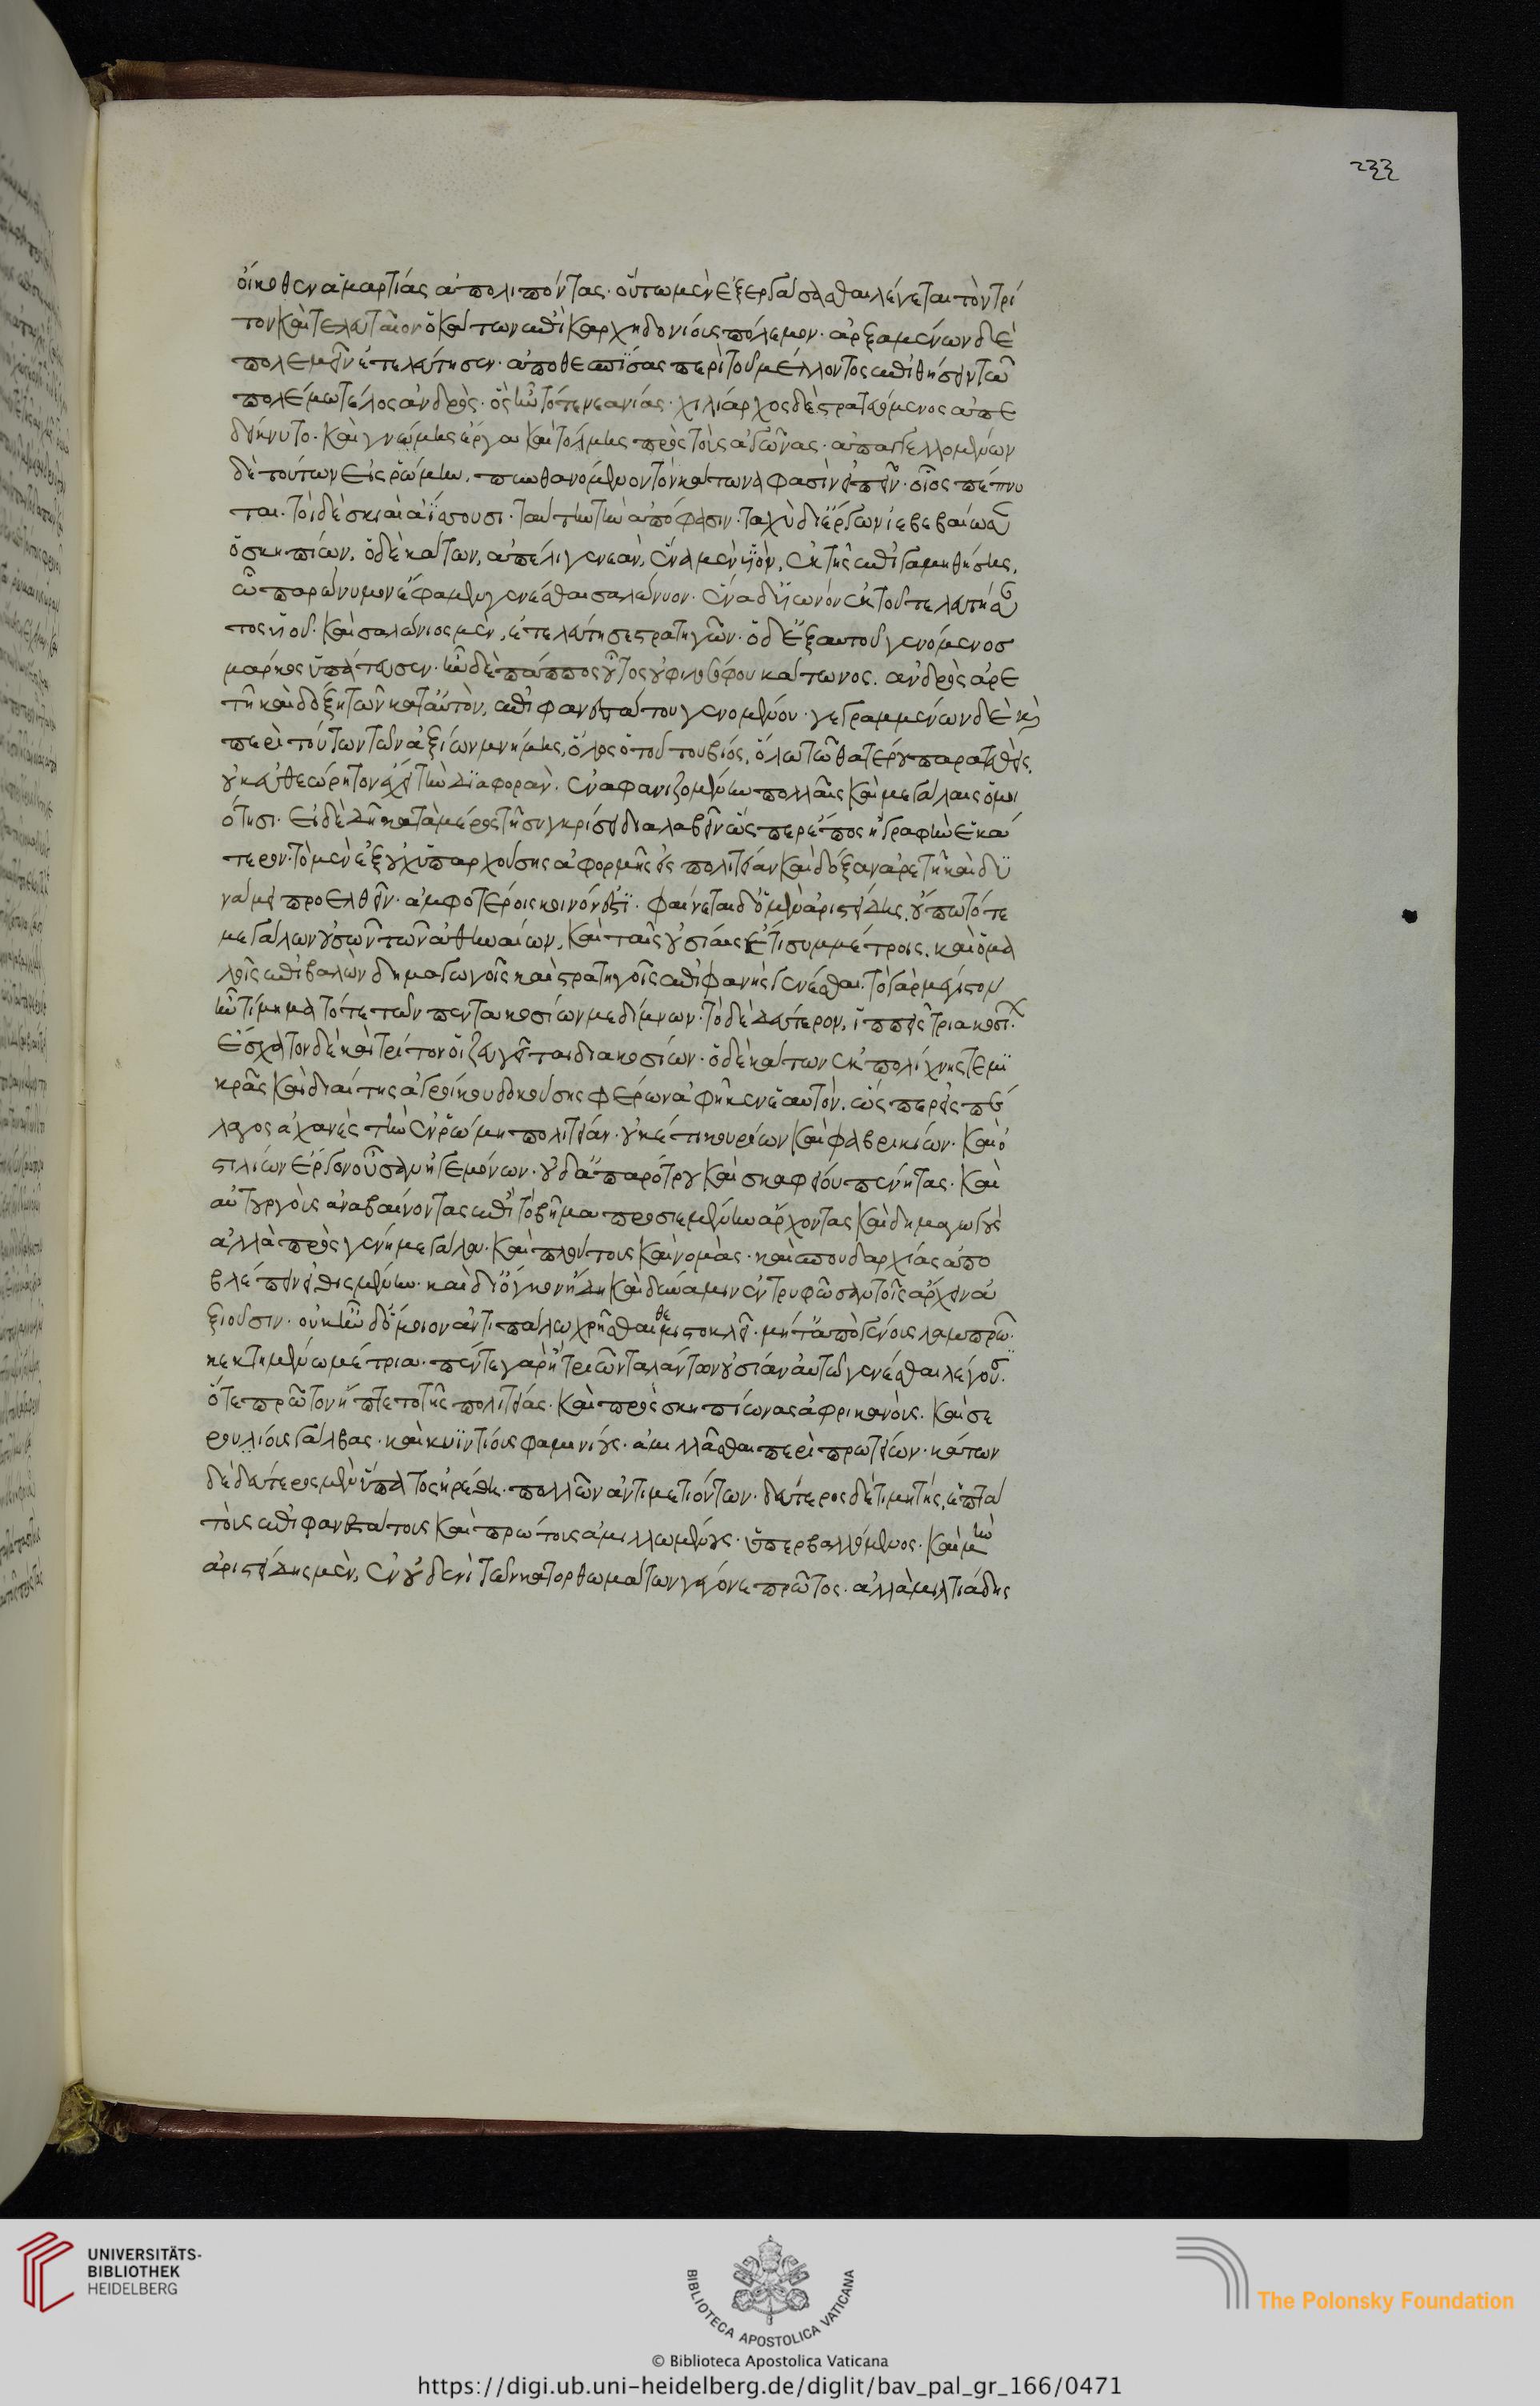 233
οἴκοθεν ἁμαρτίας ἀπολιπόντας· οὕτω μὲν ἐξεργάσασθαι λέγεται τὸν τρί
τον καὶ τελευταῖον ὁ κάτων ἐπὶ καρχηδονίοις πόλεμον· ἀρξαμένων δὲ
πολεμεῖν ἐτελεύτησεν· ἀποθεσπίσας περὶ τοῦ μέλλοντος ἐπιθήσειν τῶ
πολέμω τέλος ἀνδρὸς· ὃς ἦν τότε νεανίας· χιλίαρχος δὲ στρατευόμενος ἀπε
δείκνυτο· καὶ γνώμης ἔργα καὶ τόλμης πρὸς τοὺς ἀγῶνας· ἀπαγγελλομένων
δὲ τούτων εἰς ῥώμην, πυνθανόμενον τὸν κάτωνά φασὶν εἰπεῖν· οἷος πέπνυ
ται· τοὶ δὲ σκιαὶ ἀΐσσουσι· ταύτην τὴν ἀπόφασιν· ταχὺ δι' ἔργων ἐβεβαίωσεν
ὁ σκηπίων, ὁ δὲ κάτων, ἀπέλιπε γενεὰν, ἕνα μὲν υἱὸν, ἐκ τῆς ἐπιγαμηθείσης,
ὧ παρώνυμον ἔφαμεν γενέσθαι σαλώνιον· ἕνα δ' υἱωνὸν ἐκ τοῦ τελευτήσαν
τος υἱοῦ· καὶ σαλώνιος μὲν, ἐτελεύτησε στρατηγῶν· ὁ δ' ἐξ αυτοῦ γενόμενος
μαρκος ὑπάτευσεν· ἦν δὲ πάππος οὗτος τοῦ φιλοσόφου κάτωνος· ανδρὸς ἀρε
τῆ καὶ δόξη τῶν κατ' αὐτὸν, ἐπιφανεστάτου γενομένου· γεγραμμένων δὲ καὶ
περὶ τούτων τῶν ἀξίων μνήμης, ὅλος ὁ τούτου βίος, ὅλω τῶ θατέρου παρατεθεὶς,
οὐκ εὐθεώρητον ἔχει τὴν διαφορὰν· ἐναφανιζομένην πολλαῖς καὶ μεγάλαις ὁμοι
ότησι· εἰ δὲ δεῖ κατὰ μέρος τῆ συγκρίσει διαλαβεῖν ὥσπερ ἔπος ἢ γραφὴν ἑκά
τερον· τὸ μὲν ἐξ οὐχ ὑπαρχούσης ἀφορμῆς εἰς πολιτείαν καὶ δόξαν ἀρετῆ καὶ δυ
νάμει προελθεῖν· ἀμφοτέροις κοινόν ἐστι· φαίνεται δ' ὁ μὲν ἀριστείδης, οὔπω τότε
μεγάλων οὐσῶν τῶν ἀθηναίων, καὶ ταῖς οὐσίαις ἔτι συμμέτροις, καὶ ὁμα
λοῖς ἐπιβαλὼν δημαγωγοῖς καὶ στρατηγοῖς ἐπιφανὴς γενέσθαι· τὸ γὰρ μέγιστον
ἦν τίμημα τότε τῶν πεντακοσίων μεδίμνων· τὸ δὲ δεύτερον, ἱππεῖς τριακοσίων·
ἔσχατον δὲ καὶ τρίτον οἱ ζευγῖται διακοσίων· ὁ δὲ κάτων ἐκ πολίχνης τε μι
κρᾶς καὶ διαίτης ἀγροίκου δοκούσης φέρων ἀφῆκεν ἑαυτὸν, ὥσπερ εἰς πέ
λαγος ἀχανὲς τὴν ἐν ῥώμη πολιτείαν· οὐκέτι κουρίων καὶ φαβρικίων· καὶ ὁ
στιλίων ἔργον οὖσαν ἡγεμόνων· οὐδ' ἀπ' ἀρότρου καὶ σκαφείου πένητας· καὶ
αὐτουργοὺς ἀναβαίνοντας ἐπὶ τὸ βῆμα προσιεμένην ἄρχοντας καὶ δημαγωγοὺς
ἀλλὰ πρὸς γένη μεγάλα· καὶ πλούτους καὶ νομὰς· καὶ σπουδαρχίας ἀπο
βλέπειν εἰθισμένην· καὶ δι' ὄγκον ἤδη καὶ δύναμιν ἐντρυφῶσαν τοῖς ἄρχειν ἀ
ξιοῦσιν· οὐκ ἦν δ' ὅμοιον ἀντιπάλω χρῆσθαι θεμιστοκλεῖ· μήτ' ἀπὸ γένους λαμπρῶ·
κεκτημένω μέτρια· πέντε γὰρ ἢ τριῶν ταλάντων οὐσίαν αὐτῶ γενέσθαι λέγουσιν·
ὅτε πρῶτον ἥπτετο τῆς πολιτείας· καὶ πρὸς σκηπίωνας ἀφρικανοὺς· καὶ σε
ρουλίους γάλβας· καὶ κυϊντίους φαμινίους· ἁμιλλᾶσθαι περὶ πρωτείων· κάτων
δὲ δεύτερος μὲν ὕπατος ἡρέθη· πολλῶν ἀντιμετιόντων· δεύτερος δὲ τιμητής, ἑπτὰ
τοῖς ἐπιφανεστάτοις καὶ πρώτοις ἁμιλλωμένους· ὑπερβαλλόμενος· καὶ μὴν
ἀριστείδης μὲν, ἐν οὐδενὶ τῶν κατορθωμάτων γέγονε πρῶτος· ἀλλὰ μιλτιάδης
UNIVERSITÄTS-
BIBLIOTHEK
HEIDELBERG
BIBLIOTECA APOSTOLICA VATICANA
The Polonsky Foundation
© Biblioteca Apostolica Vaticana
https://digi.ub.uni-heidelberg.de/diglit/bav_pal_gr_166/0471